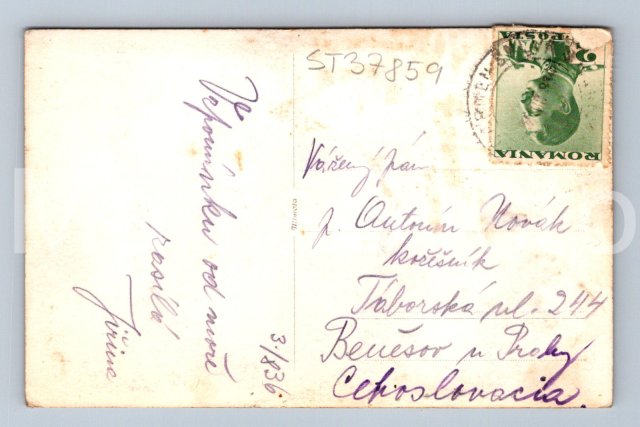 ST37859
Ve
vzpomínku od moře
zasílá
Jiřina
3./8 36.
Vážený pán
p. Antonín Novák
kožešník
Táborská ul. 244
Benešov u Prahy
Cehoslovacia.
POSTA
2
ROMANIA
Mimosa